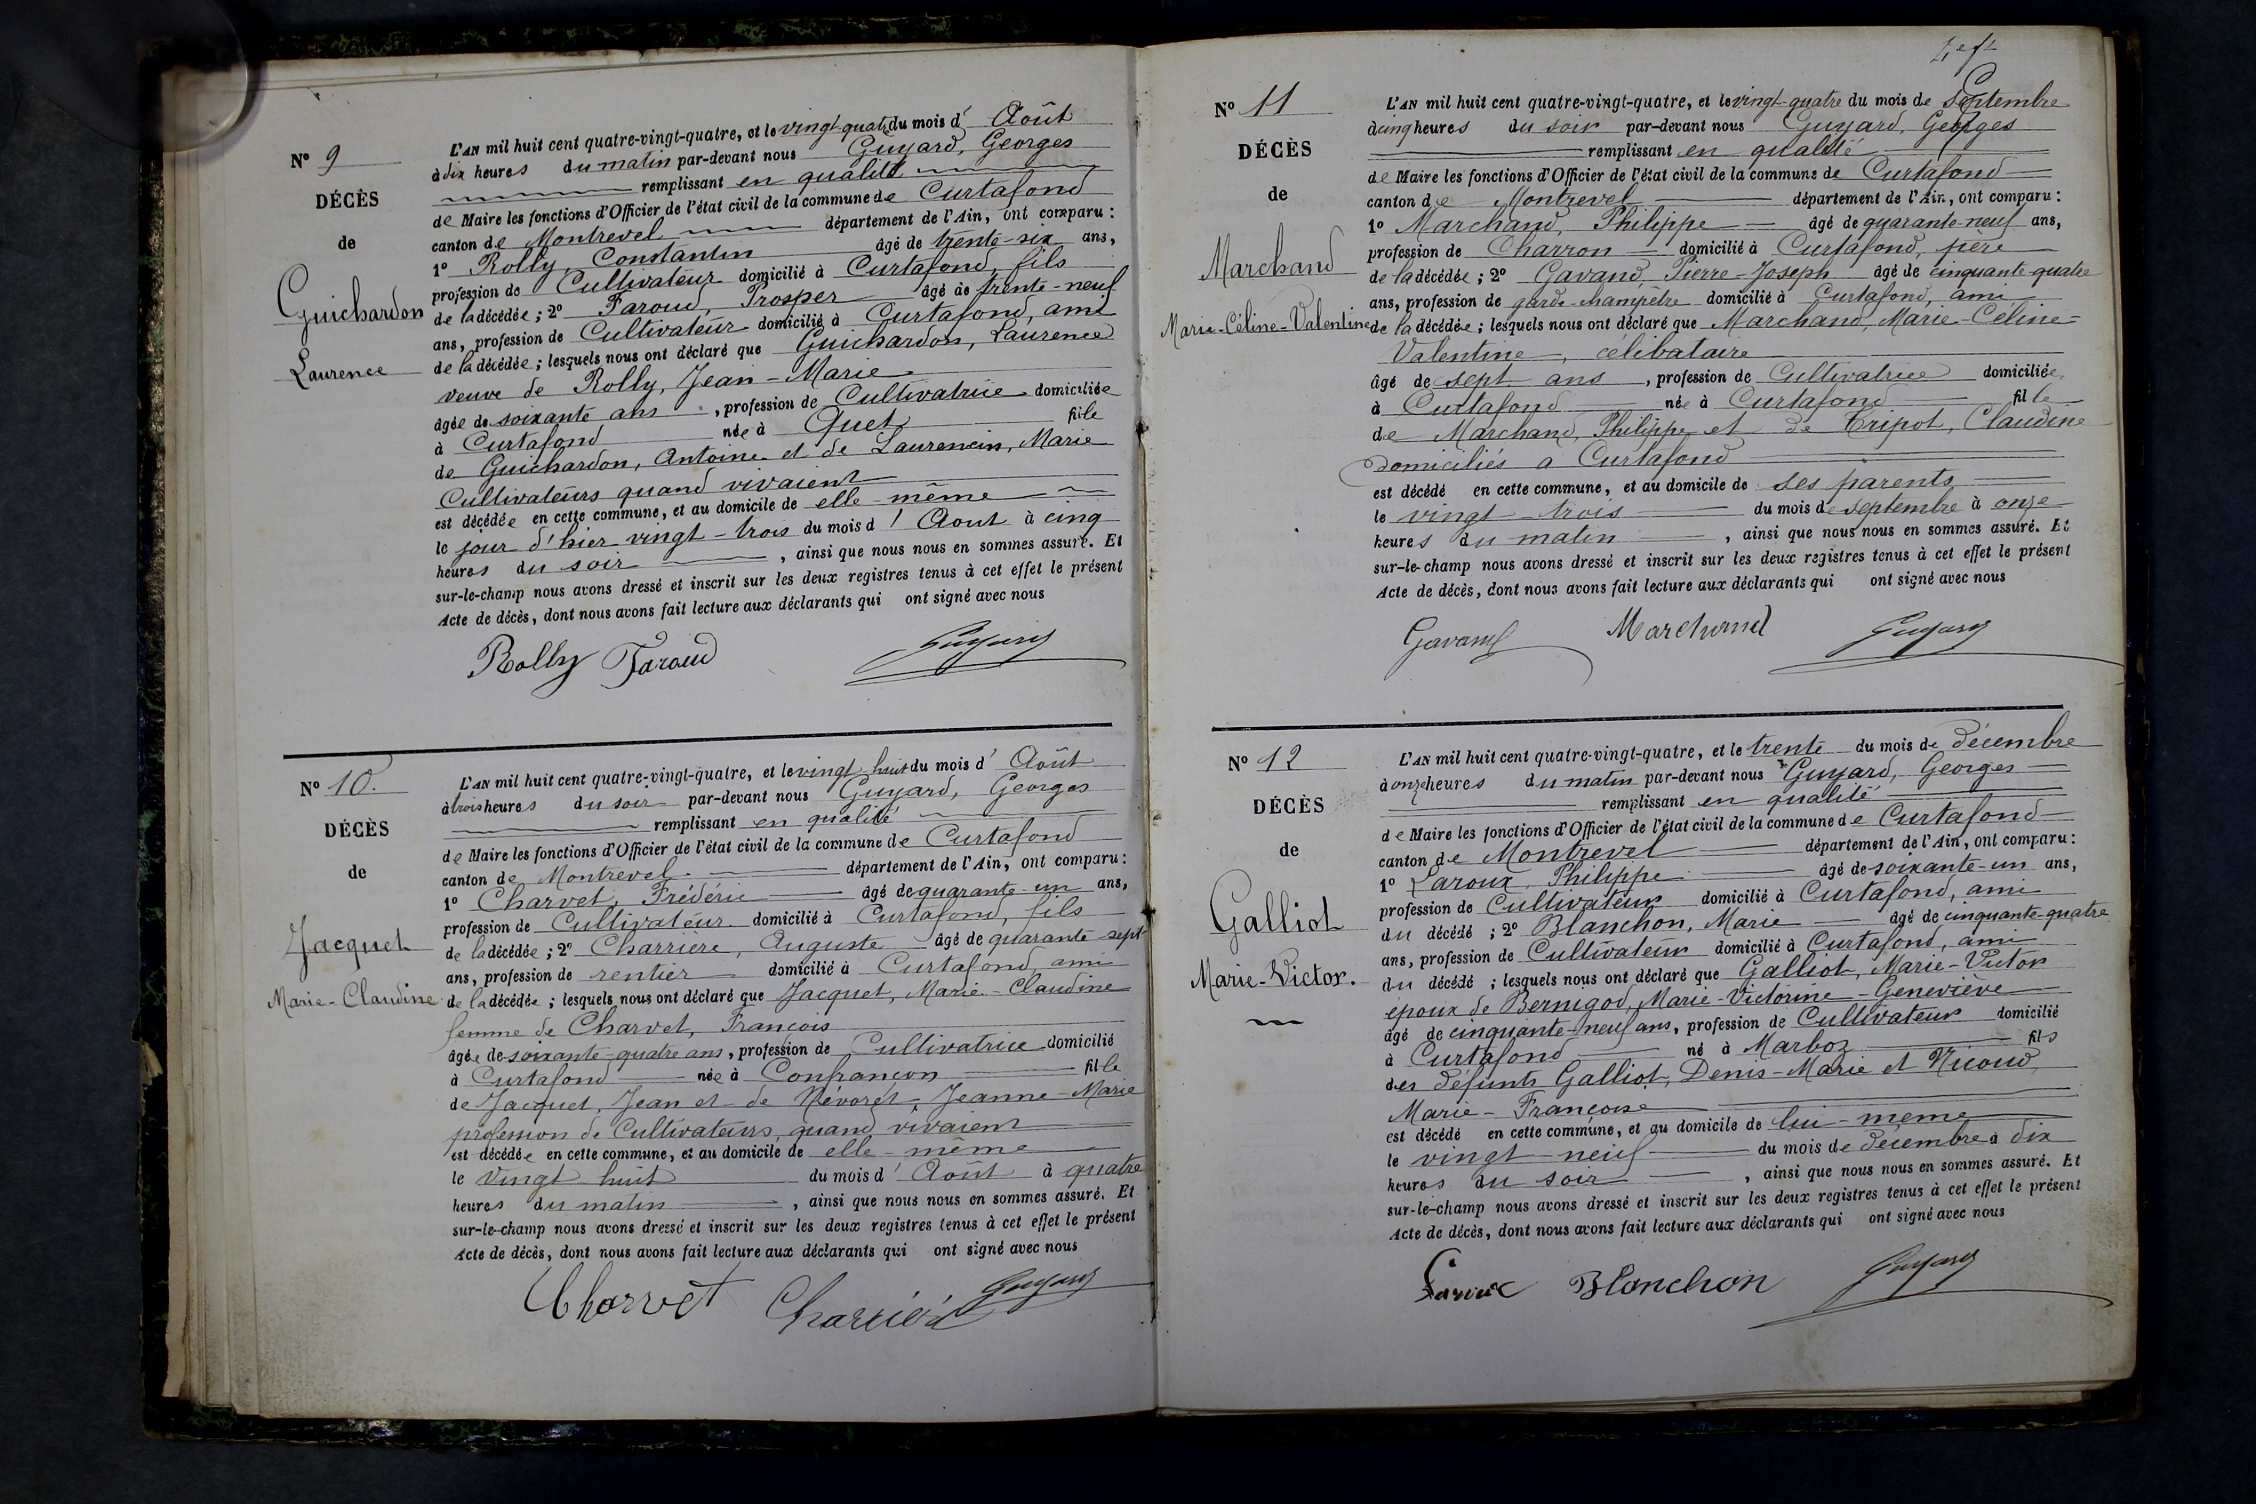 N° 9
DÉCÈS
de
Guichardon
Laurence
L'AN mil huit cent quatre-vingt-quatre, et le vingt quatre du mois d' Août
à dix heures du matin par-devant nous Guyard, Georges
remplissant en qualité
de Maire les fonctions d'Officier de l'état civil de la commune de Curtafond
canton de Montrevel département de l'Ain, ont comparu :
1° Rolly, Constantin âgé de trente-six ans,
profession de Cultivateur domicilié à Curtafond, fils
de la décédée ; 2° Faroud, Prosper âgé de trente-neuf
ans, profession de Cultivateur domicilié à Curtafond, ami
de la décédée ; lesquels nous ont déclaré que Guichardon, Laurence
veuve de Rolly, Jean-Marie
âgée de soixante ans, profession de Cultivatrice domiciliée
à Curtafond née à Quet fille
de Guichardon, Antoine et de Laurencin, Marie
Cultivateurs quand vivaient
est décédée en cette commune, et au domicile de elle-même
le jour d'hier vingt-trois du mois d' Aout à cinq
heures du soir, ainsi que nous nous en sommes assuré. Et
sur-le-champ nous avons dressé et inscrit sur les deux registres tenus à cet effet le présent
Acte de décès, dont nous avons fait lecture aux déclarants qui ont signé avec nous
Rolly Faroud Guyard
N° 10.
DÉCÈS
de
Jacquet
Marie-Claudine
L'AN mil huit cent quatre-vingt-quatre, et le vingt huit du mois d' Août
à trois heures du soir par-devant nous Guyard, Georges
remplissant en qualité
de Maire les fonctions d'Officier de l'état civil de la commune de Curtafond
canton de Montrevel département de l'Ain, ont comparu :
1° Charvet, Frédéric âgé de quarante-un ans,
profession de Cultivateur domicilié à Curtafond, fils
de la décédée ; 2° Charriere, Auguste âgé de quarante-sept
ans, profession de rentier domicilié à Curtafond, ami
de la décédée ; lesquels nous ont déclaré que Jacquet, Marie-Claudine
femme de Charvet, François
âgée de soixante-quatre ans, profession de Cultivatrice domicilié
à Curtafond née à Confrançon fille
de Jacquet, Jean et de Névoret, Jeanne-Marie
profession de Cultivateurs, quand vivaient
est décédée en cette commune, et au domicile de elle-même
le vingt huit du mois d' Août à quatre
heures du matin, ainsi que nous nous en sommes assuré. Et
sur-le-champ nous avons dressé et inscrit sur les deux registres tenus à cet effet le présent
Acte de décès, dont nous avons fait lecture aux déclarants qui ont signé avec nous
Charvet Guyard
N° 11
DÉCÈS
de
Marchand
Marie-Céline-Valentine
L'AN mil huit cent quatre-vingt-quatre, et le vingt-quatre du mois de Septembre
à cinq heures du soir par-devant nous Guyard, Georges
remplissant en qualité
de Maire les fonctions d'Officier de l'état civil de la commune de Curtafond
canton de Montrevel département de l'Ain, ont comparu :
1° Marchand, Philippe âgé de quarante-neuf ans,
profession de Charron domicilié à Curtafond, père
de la décédée ; 2° Gavand, Pierre-Joseph âgé de cinquante-quatre
ans, profession de garde-champêtre domicilié à Curtafond, ami
de la décédée ; lesquels nous ont déclaré que Marchand, Marie-Céline-
Valentine, célibataire
âgé de sept ans, profession de Cultivatrice domiciliée
à Curtafond née à Curtafond fille
de Marchand, Philippe et de Tripot, Claudine
domiciliés à Curtafond
est décédé en cette commune, et au domicile de ses parents
le vingt-trois du mois de septembre à onze
heures du matin, ainsi que nous nous en sommes assuré. Et
sur-le-champ nous avons dressé et inscrit sur les deux registres tenus à cet effet le présent
Acte de décès, dont nous avons fait lecture aux déclarants qui ont signé avec nous
Gavand Marchand Guyard
N° 12
DÉCÈS
de
Galliot
Marie-Victor.
L'AN mil huit cent quatre-vingt-quatre, et le trente du mois de décembre
à onze heures du matin par-devant nous Guyard, Georges
remplissant en qualité
de Maire les fonctions d'Officier de l'état civil de la commune de Curtafond
canton de Montrevel département de l'Ain, ont comparu :
1° Laroux, Philippe âgé de soixante-un ans,
profession de Cultivateur domicilié à Curtafond, ami
du décédé ; 2° Blanchon, Marie âgé de cinquante-quatre
ans, profession de Cultivateur domicilié à Curtafond, ami
du décédé ; lesquels nous ont déclaré que Galliot, Marie-Victor
époux de Bernigod, Marie-Victorine-Geneviève
âgé de cinquante-neuf ans, profession de Cultivateur domicilié
à Curtafond né à Marboz fils
des défunts Galliot, Denis-Marie et Nicoud,
Marie-Françoise
est décédé en cette commune, et au domicile de lui-même
le vingt-neuf du mois de décembre à dix
heures du soir, ainsi que nous nous en sommes assuré. Et
sur-le-champ nous avons dressé et inscrit sur les deux registres tenus à cet effet le présent
Acte de décès, dont nous avons fait lecture aux déclarants qui ont signé avec nous
Laroux Blanchon Guyard